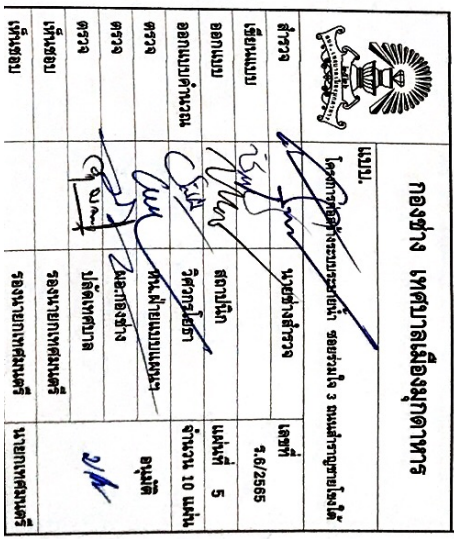 กองช่าง เทศบาลเมืองมุกดาหาร
แบบ.
โครงการก่อสร้างระบบระบายน้ำ ซอยร่วมใจ 3 ถนนสำราญชายโขงใต้
สำรวจ นายช่างสำรวจ เลขที่
เขียนแบบ ร.6/2565
ออกแบบ สถาปนิก แผ่นที่ 5
ออกแบบคำนวณ วิศวกรโยธา จำนวน 10 แผ่น
ตรวจ หน.ฝ่ายแบบแผนฯ อนุมัติ
ตรวจ ผอ.กองช่าง
ตรวจ ปลัดเทศบาล
เห็นชอบ รองนายกเทศมนตรี
เห็นชอบ รองนายกเทศมนตรี นายกเทศมนตรี